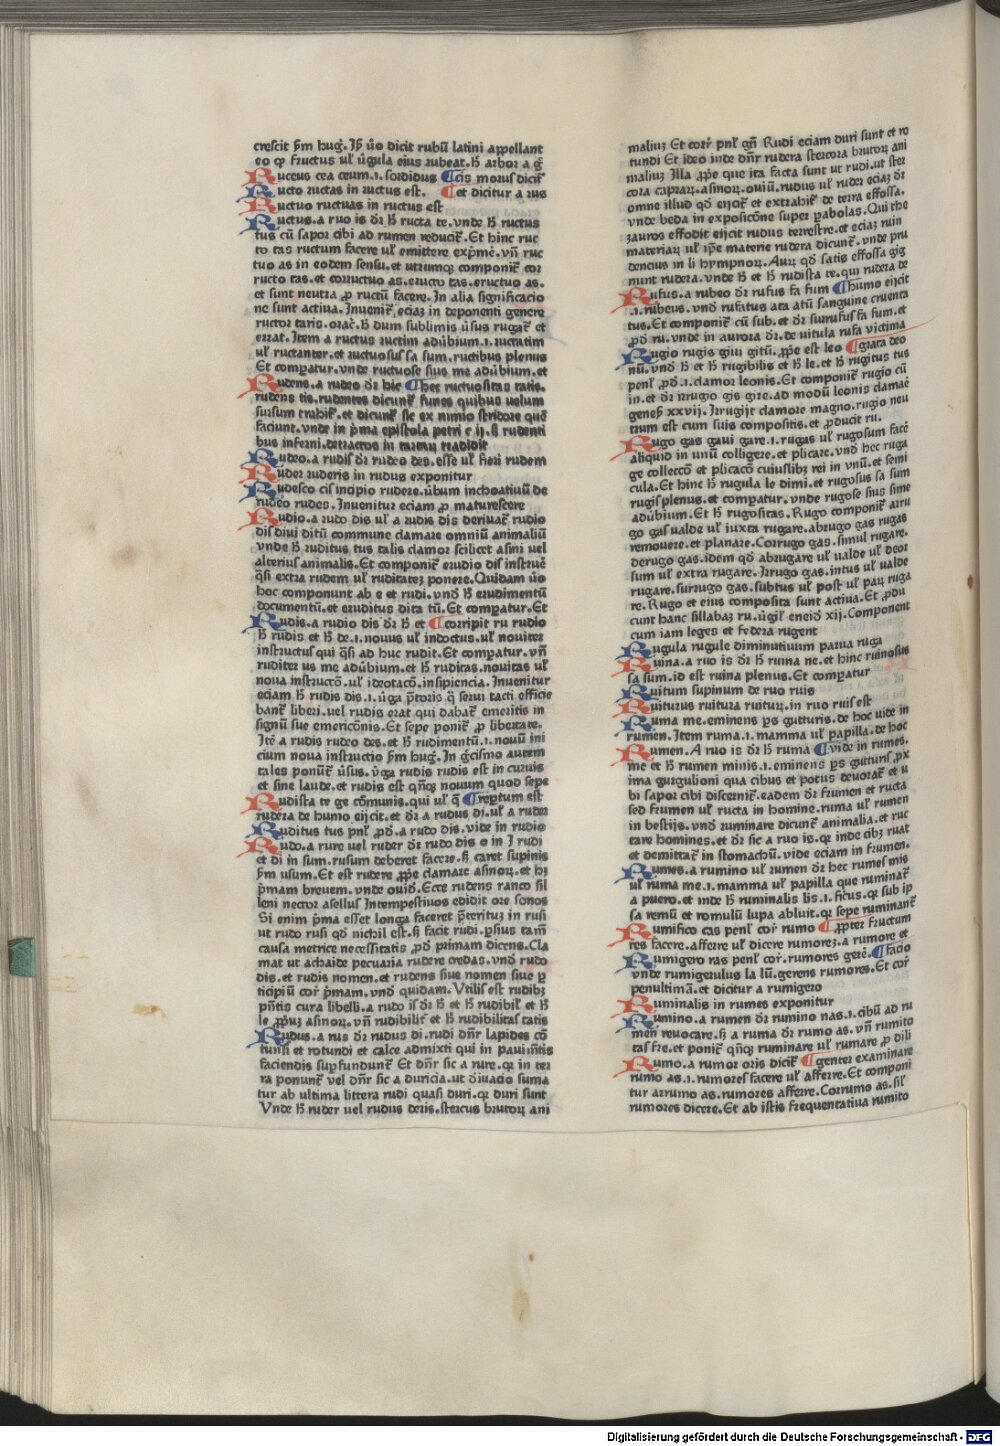 crescit ẜm hug̃. Isid̃ ṽo dicit rubũ latini appellant
eo ꝙ fructus ul̕ ũgula eius rubeat. h̃ arbor a g̃
Ruceus cea ceum .i. sordidus ¶cis morus dicit᷑
Ructo ructas in ructus est. ¶et dicitur a rus
Ructuo ructuas in ructus est
Ructus. a ruo is dr̃ h̃ ructa te. vnde h̃ ructus
tus cũ sapor cibi ad rumen reducit᷑. Et hinc ruc
to tas ructum facere ul̕ emittere exp̃mẽ. vñ ruc
tuo as in eodem sensu. et utrumqꝫ componit᷑ cor
ructo tas. et corructuo as. eructo tas. eructuo as.
et sunt neutra ꝓ ructũ facere. In alia significacio
ne sunt actiua. Inuenit᷑. eciaꝫ in deponenti genere
ructor taris. orac̃. h̃ dum sublimis ũsus rugat᷑ et
errat. Item a ructus ructim adũbium .i. ructatim
ul̕ ructanter. et ructuosus sa sum. ructibus plenus
Et compatur. vnde ructuose sius me adũbium. et
Rudens. a rudeo dr̃ hic ¶hec ructuositas tatis.
rudens tis. rudentes dicunt᷑ funes quibus uelum
sursum trahit᷑. et dicunt᷑ sic ex nimio stridore quẽ
faciunt. vnde in p̃ma epistola petri c ij. s̃ rudenti
bus inferni. detractos in tartaꝝ tradidit
Rudeo. a rudis dr̃ rudeo des. esse ul̕ fieri rudem
Ruder ruderis in rudus exponitur
Rudesco cis incipio rudere. ũbum inchoatiuũ de
rudeo rudes. Inuenitur eciam ꝓ maturescere
Rudio. a rudo dis ul̕ a rudis dis deriuat᷑ rudio
dis diui ditũ commune clamare omniũ animaliũ
vnde h̃ ruditus tus talis clamor scilicet asini uel
alterius animalis. Et componit᷑ erudio dis instruẽ
q̃si extra rudem ul̕ ruditateꝫ ponere. Quidam ũo
hoc componunt ab e et rudi. vnd̃ h̃ erudimentũ
documentũ. et eruditus dita tũ. Et compatur. Et
Rudis. a rudio dis dr̃ h̃ et ¶corripit ru rudio
h̃ rudis et h̃ de .i. nouus ul̕ indoctus. ul̕ nouiter
instructus qui q̃si ad huc rudit. Et compatur. vñ
ruditer us me adũbium. et h̃ ruditas. nouitas ul̕
noua instructõ. ul̕ ideotacõ. insipiencia. Inuenitur
eciam h̃ rudis dis .i. ũga p̃toris q̃ serui tacti efficie
bant᷑ liberi. uel rudis erat qui dabat᷑ emeritis in
signũ sue emericõnis. Et sepe ponit᷑ ꝓ libertate.
Itẽ a rudis rudeo des. et h̃ rudimentũ .i. nouũ ini
cium noua instructio ẜm hug. In g̃cismo autem
tales ponũt᷑ ũsus. ũga rudis rudis est in curuis
et sine laude. et rudis est qñqꝫ nouum quod sepe
Rudista te ge cõmunis. qui ul̕ q̃ ¶reptum est
rudera de humo eijcit. et dr̃ a rudus di. ul̕ a ruder
Ruditus tus pnl̕ ꝓd̃. a rudo dis. vide in rudio
Rudo. a rure uel ruder dr̃ rudo dis o in J rudi
et di in sum. rusum deberet facere. s̃ caret supinis
ẜm usum. Et est rudere ꝓpe clamare asinoꝝ. et hꝫ
p̃mam breuem. vnde ouid̃. Ecce rudens ranco sil
leni nector asellus Intempestiuos edidit ore sonos
Si enim p̃ma esset longa faceret p̃terituꝫ in rusi
ut rudo rusi qd̃ nichil est. s̃ facit rudi. ꝑsius tam̃
causa metrice necessitatis ꝓd̃ primam dicens. Cla
mat ut achaide pecuaria rudere credas. vnd̃ rudo
dis. et rudis nomen. et rudens siue nomen siue ꝑ
ticipiũ cor̃ p̃mam. vnd̃ quidam. Vtilis est rudibꝫ
p̃ntis cura libelli. a rudo is dr̃ h̃ et h̃ rudibil̕ et h̃
le ꝓpuꝫ asinoꝝ. vñ rudibilit᷑ et h̃ rudibilitas tatis
Rudus. a rus dr̃ rudus di. rudi dñr lapides cõ
tunsi et rotundi et calce admixti qui in pauim̃tis
faciendis supfundunt᷑ Et dñr sic a rure. qꝛ in ter
ra ponunt᷑ vel dñr sic a duricia. ut d̃iuacio suma
tur ab ultima littera rudi quasi duri. qꝛ duri sunt
Vnde h̃ ruder uel rudus deris. stercus brutoꝝ ani
maliuꝫ Et corr̃ pnl̕ gñ Rudi eciam duri sunt et ro
tundi Et ideo inde dñr rudera stercora brutoꝝ ani
maliuꝫ Illa ꝓpe que ita facta sunt ut rudi. ut ster
cora capraꝝ. asinoꝝ. ouiũ. rudus ul̕ ruder eciaꝫ dr̃
omne illud qd̃ eijcit᷑ et extrahit᷑ de terra effossa.
vnde beda in exposicõne super ꝑabolas. Qui the
zauros effodit eijcit rudus terrestre. et eciaꝫ ruin
materiaꝝ ul̕ ip̃e materie rudera dicunt᷑. vnde pru
dencius in li hympnoꝝ. Auꝝ qd̃ satis effossa gig
nunt rudera. vnde h̃ et h̃ rudista te. qui rudera de
Rufus. a rubeo dr̃ rufus fa fum ¶humo eijcit
.i. rubeus. vnd̃ rufatus ata atũ sanguine cruenta
tus. Et componit᷑ cũ sub. et dr̃ surrufus fa fum. et
ꝓd̃ ru. vnde in aurora dr̃. de uitula rufa victima
Rugio rugis giui gitũ. ꝓpe est leo ¶grata deo
nũ. vnd̃ h̃ et h̃ rugibilis et h̃ le. et h̃ rugitus tus
penl̕ ꝓd̃ .i. clamor leonis. Et componit᷑ rugio cũ
in. et dr̃ irrugio gis gire. ad modũ leonis clamaẽ
geneẜ xxvij. Irrugijt clamore magno. rugio neu
trum est cum suis compositis. et ꝓducit ru.
Rugo gas gaui gare .i. rugas ul̕ rugosum facẽ
aliquid in unũ colligere. et plicare. vnd̃ hec ruga
ge colleccõ et plicacõ cuiuslibꝫ rei in vnũ. et semi
cula. Et hinc h̃ rugula le dimi. et rugosus sa sum
rugis plenus. et compatur. vnde rugose sius sime
adũbium. Et h̃ rugositas. Rugo componit᷑ arru
go gas ualde ul̕ iuxta rugare. abrugo gas rugas
remouere. et planare. Corrugo gas. simul rugare.
derugo gas. idem qd̃ abrugare ul̕ ualde ul̕ deor
sum ul̕ extra rugare. Irrugo gas. intus ul̕ ualde
rugare. surrugo gas. subtus ul̕ post ul̕ paꝝ ruga
re. Rugo et eius composita sunt actiua. Et ꝓdu
cunt hanc sillabaꝫ ru. ũgil̕ eneid̃ xij. Component
cum iam leges et federa rugent
Rugula rugule diminutiuum parua ruga
Ruina. a ruo is dr̃ h̃ ruina ne. et hinc ruinosus
sa sum. id est ruina plenus. Et compatur
Ruitum supinum de ruo ruis
Ruiturus ruitura ruituꝝ. in ruo ruis est
Ruma me. eminens ꝑs gutturis. de hoc uide in
rumen. Item ruma .i. mamma ul̕ papilla. de hoc
Rumen. A ruo is dr̃ h̃ ruma ¶vide in rumes.
me et h̃ rumen minis .i. eminens ꝑs gutturis ꝓx
ima gurgulioni qua cibus et potus deuorat᷑ et u
bi sapor cibi discernit᷑. eadem dr̃ frumen et ructa
sed frumen ul̕ ructa in homine. ruma ul̕ rumen
in bestijs. vnd̃ ruminare dicunt᷑ animalia. et ruc
tare homines. et dr̃ sic a ruo is. qꝛ inde cibꝫ ruat
et demittat᷑ in stomachũ. vide eciam in frumen.
Rumes. a rumino ul̕ rumen dr̃ hec rumes mis
ul̕ ruma me .i. mamma ul̕ papilla que ruminat᷑
a puero. et inde h̃ ruminalis lis .i. ficus. qꝛ sub ip
sa remũ et romulũ lupa abluit. qꝛ sepe ruminant᷑
Rumifico cas penl̕ cor̃ rumo ¶ꝓpter fructum
res facere. afferre ul̕ dicere rumoreꝫ. a rumore et
Rumigero ras penl̕ cor̃. rumores gerẽ. ¶facio
vnde rumigerulus la lũ. gerens rumores. Et cor̃
penultimã. et dicitur a rumigero
Ruminalis in rumes exponitur
Rumino. a rumen dr̃ rumino nas .i. cibũ ad ru
men reuocare. s̃ a ruma dr̃ rumo as. vñ rumito
tas fre. et ponit᷑ qñqꝫ ruminare ul̕ rumare ꝓ dili
Rumo. a rumor oris dicit᷑ ¶genter examinare
rumo as .i. rumores facere ul̕ afferre. Et componi
tur arrumo as. rumores afferre. Corrumo as. sil̕
rumores dicere. Et ab istis frequentatiua rumito
Digitalisierung gefördert durch die Deutsche Forschungsgemeinschaft - DFG